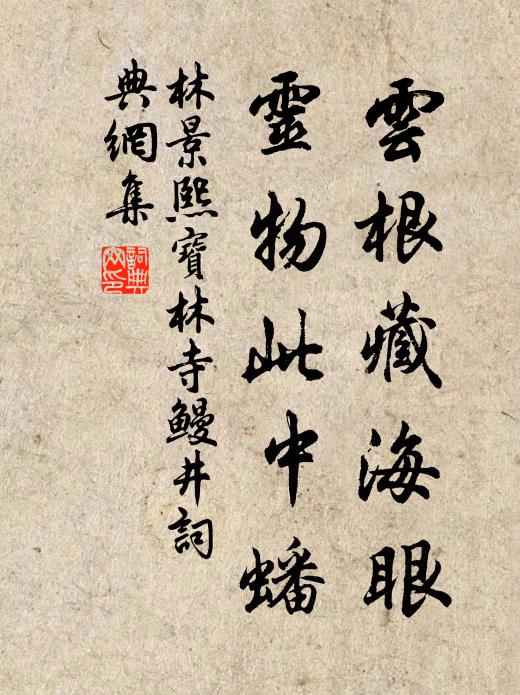 雲根藏海眼
靈物此中蟠
林景熙寶林寺鰻井詞
典網集
詞典
網印